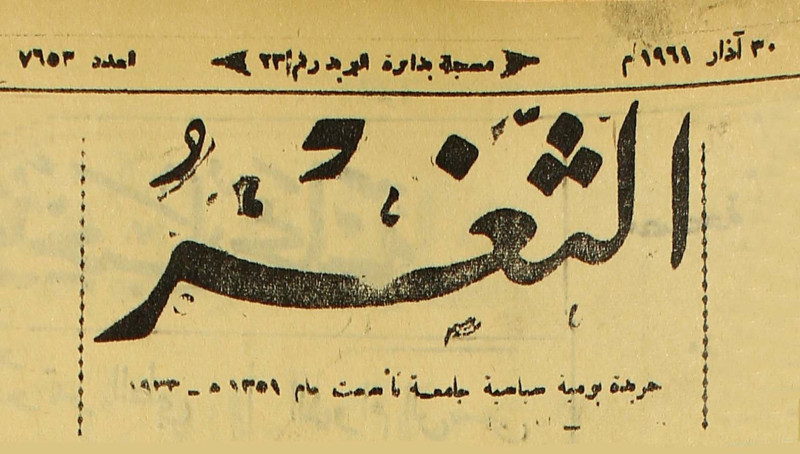 ٣٠ آذار ١٩٦١ م مسجلة بدائرة البريد رقم ٢٣ العدد ٧٦٥٣
الثَّغْرُ
جريدة يومية سياسية جامعة تأسست عام ١٣٥١ ه - ١٩٣٣